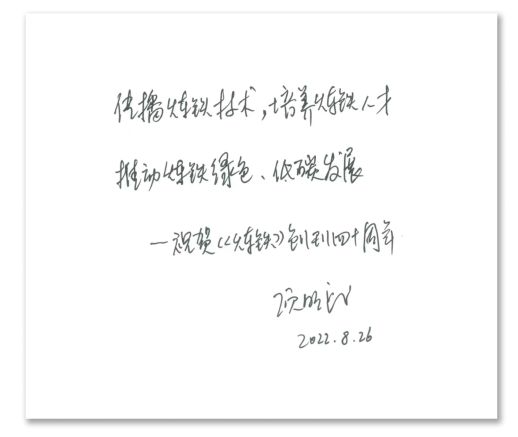 传播炼铁技术，培养炼铁人才
推动炼铁绿色、低碳发展
—祝贺《炼铁》创刊四十周年
项明武
2022.8.26